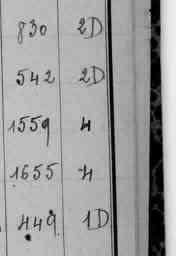 830 2D
542 2D
1559 4
1655 4
449 1D